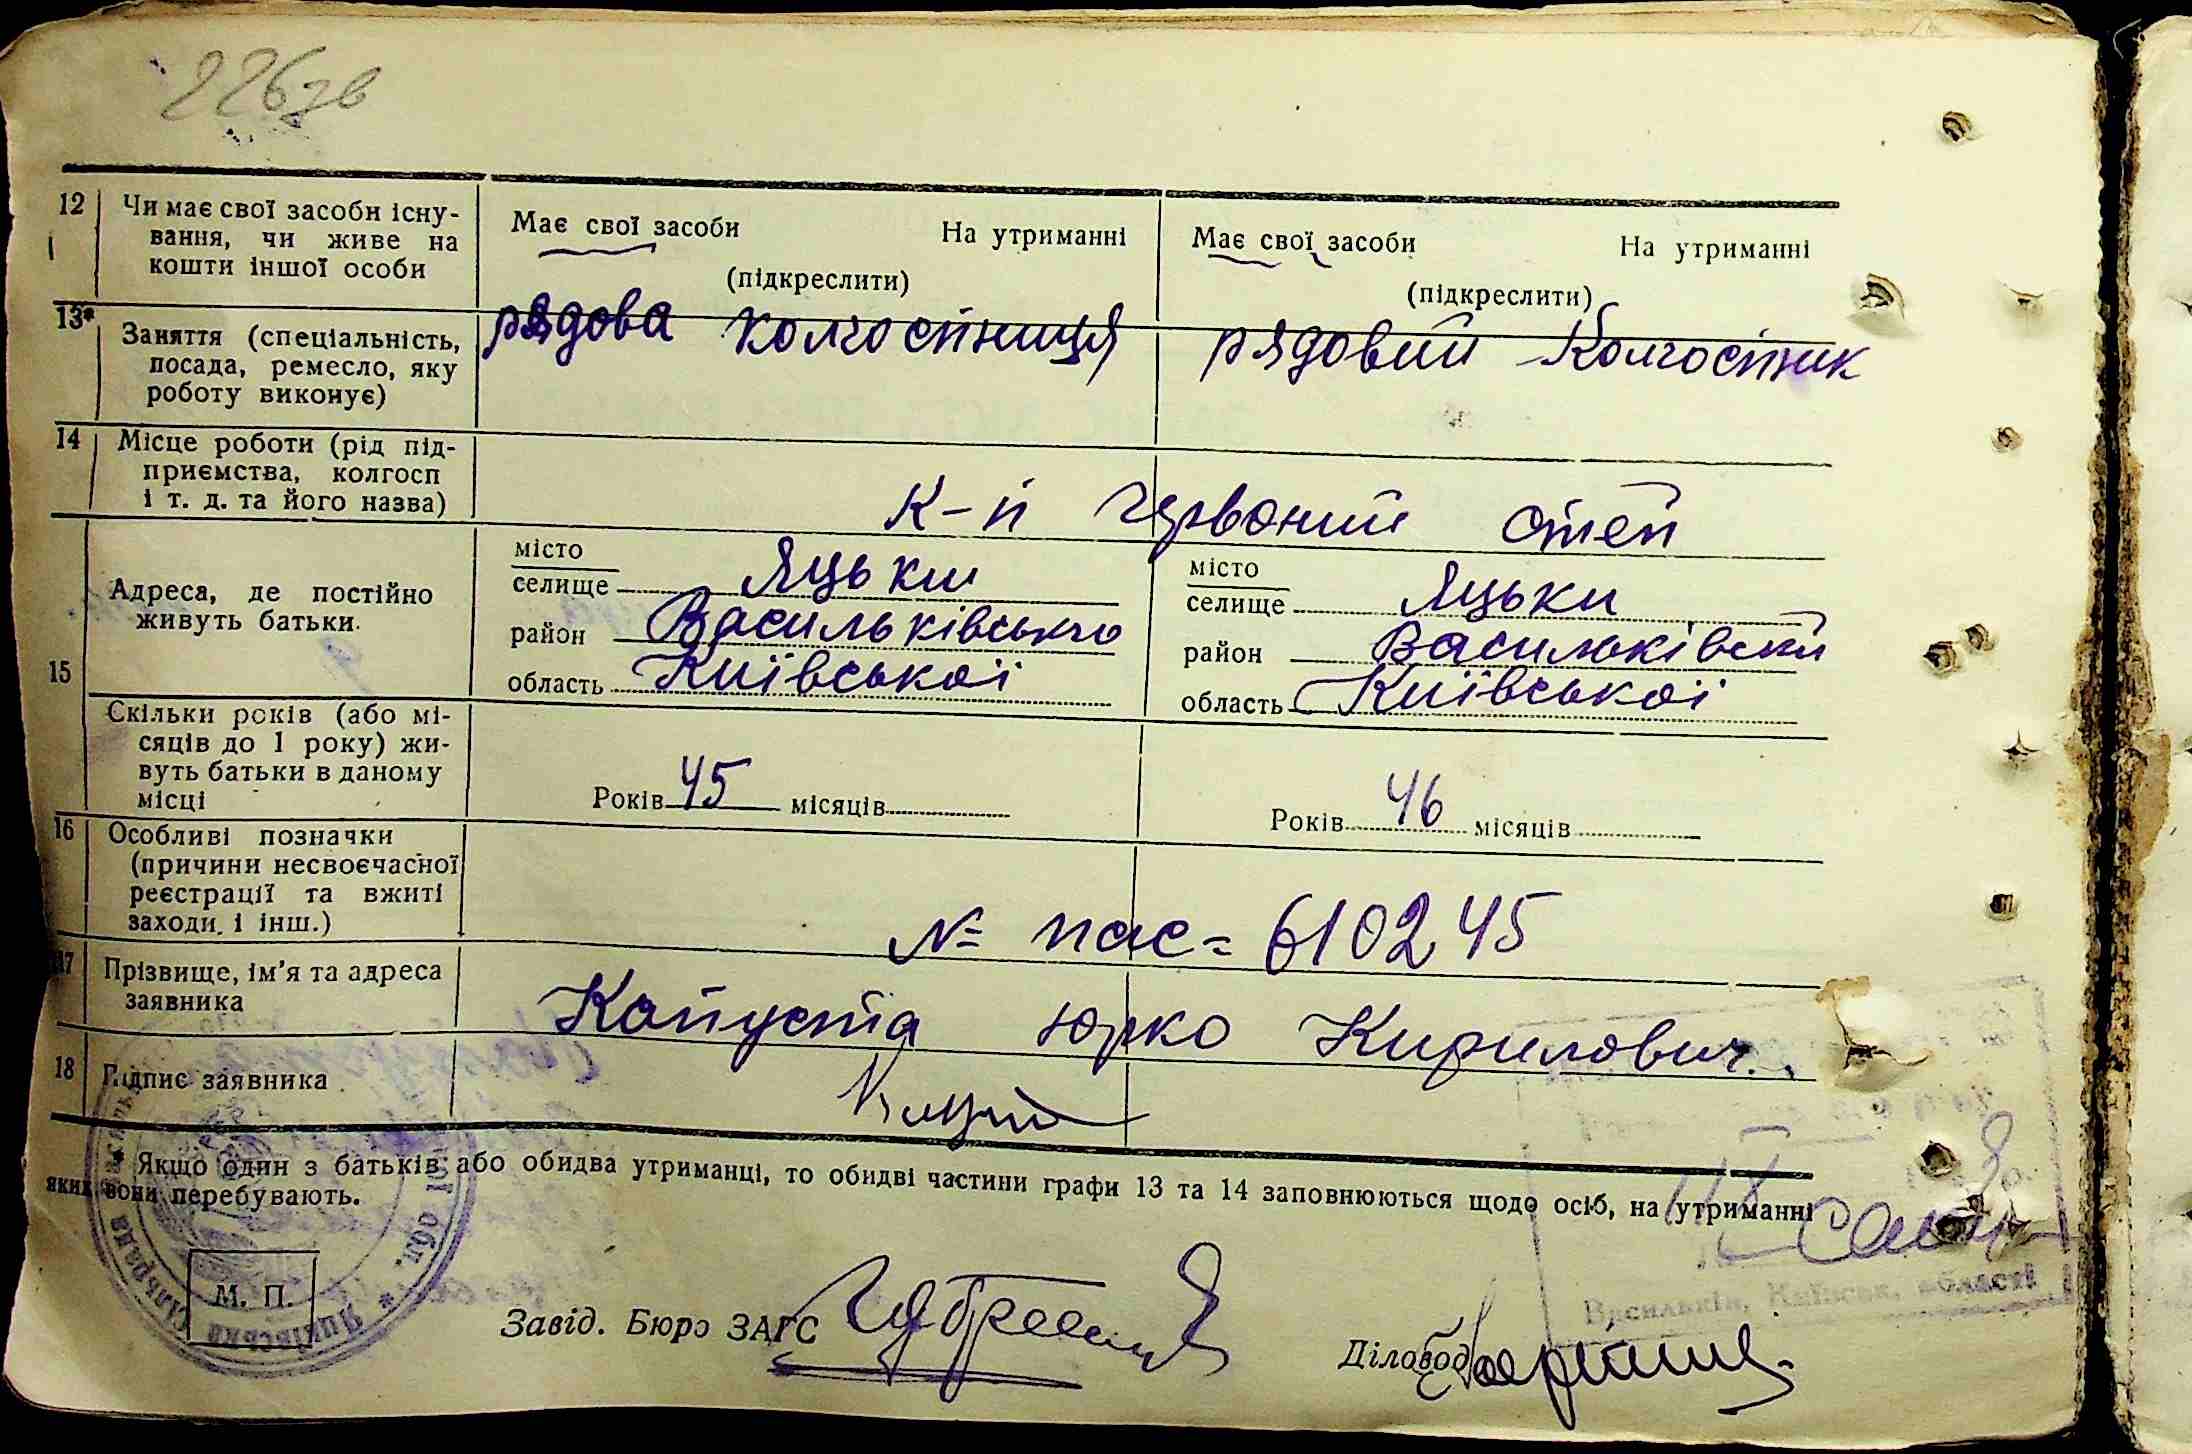 226зв
12 Чи має свої засоби існу-
вання, чи живе на
кошти іншої особи
Має свої засоби На утриманні
(підкреслити)
Має свої засоби На утриманні
(підкреслити)
13* Заняття (спеціальність,
посада, ремесло, яку
роботу виконує)
рядова колгоспниця
рядовий Колгоспник
14 Місце роботи (рід під-
приємства, колгосп
і т. д. та його назва)
К-п Червоний степ
15 Адреса, де постійно
живуть батьки.
місто
селище Яцьки
район Васильківського
область Київської
місто
селище Яцьки
район Васильківськ
область Київської
Скільки років (або мі-
сяців до 1 року) жи-
вуть батьки в даному
місці
Років 45 місяців
Років 46 місяців
16 Особливі позначки
(причини несвоєчасної
реєстрації та вжиті
заходи, і інш.)
№ пас= 610245
17 Прізвище, ім'я та адреса
заявника
Капуста Юрко Кирилович.
18 Підпис заявника
* Якщо один з батьків або обидва утриманці, то обидві частини графи 13 та 14 заповнюються щодо осіб, на утриманні
яких вони перебувають.
М. П.
Завід. Бюро ЗАГС
Діловод
Васильків, Київськ. області